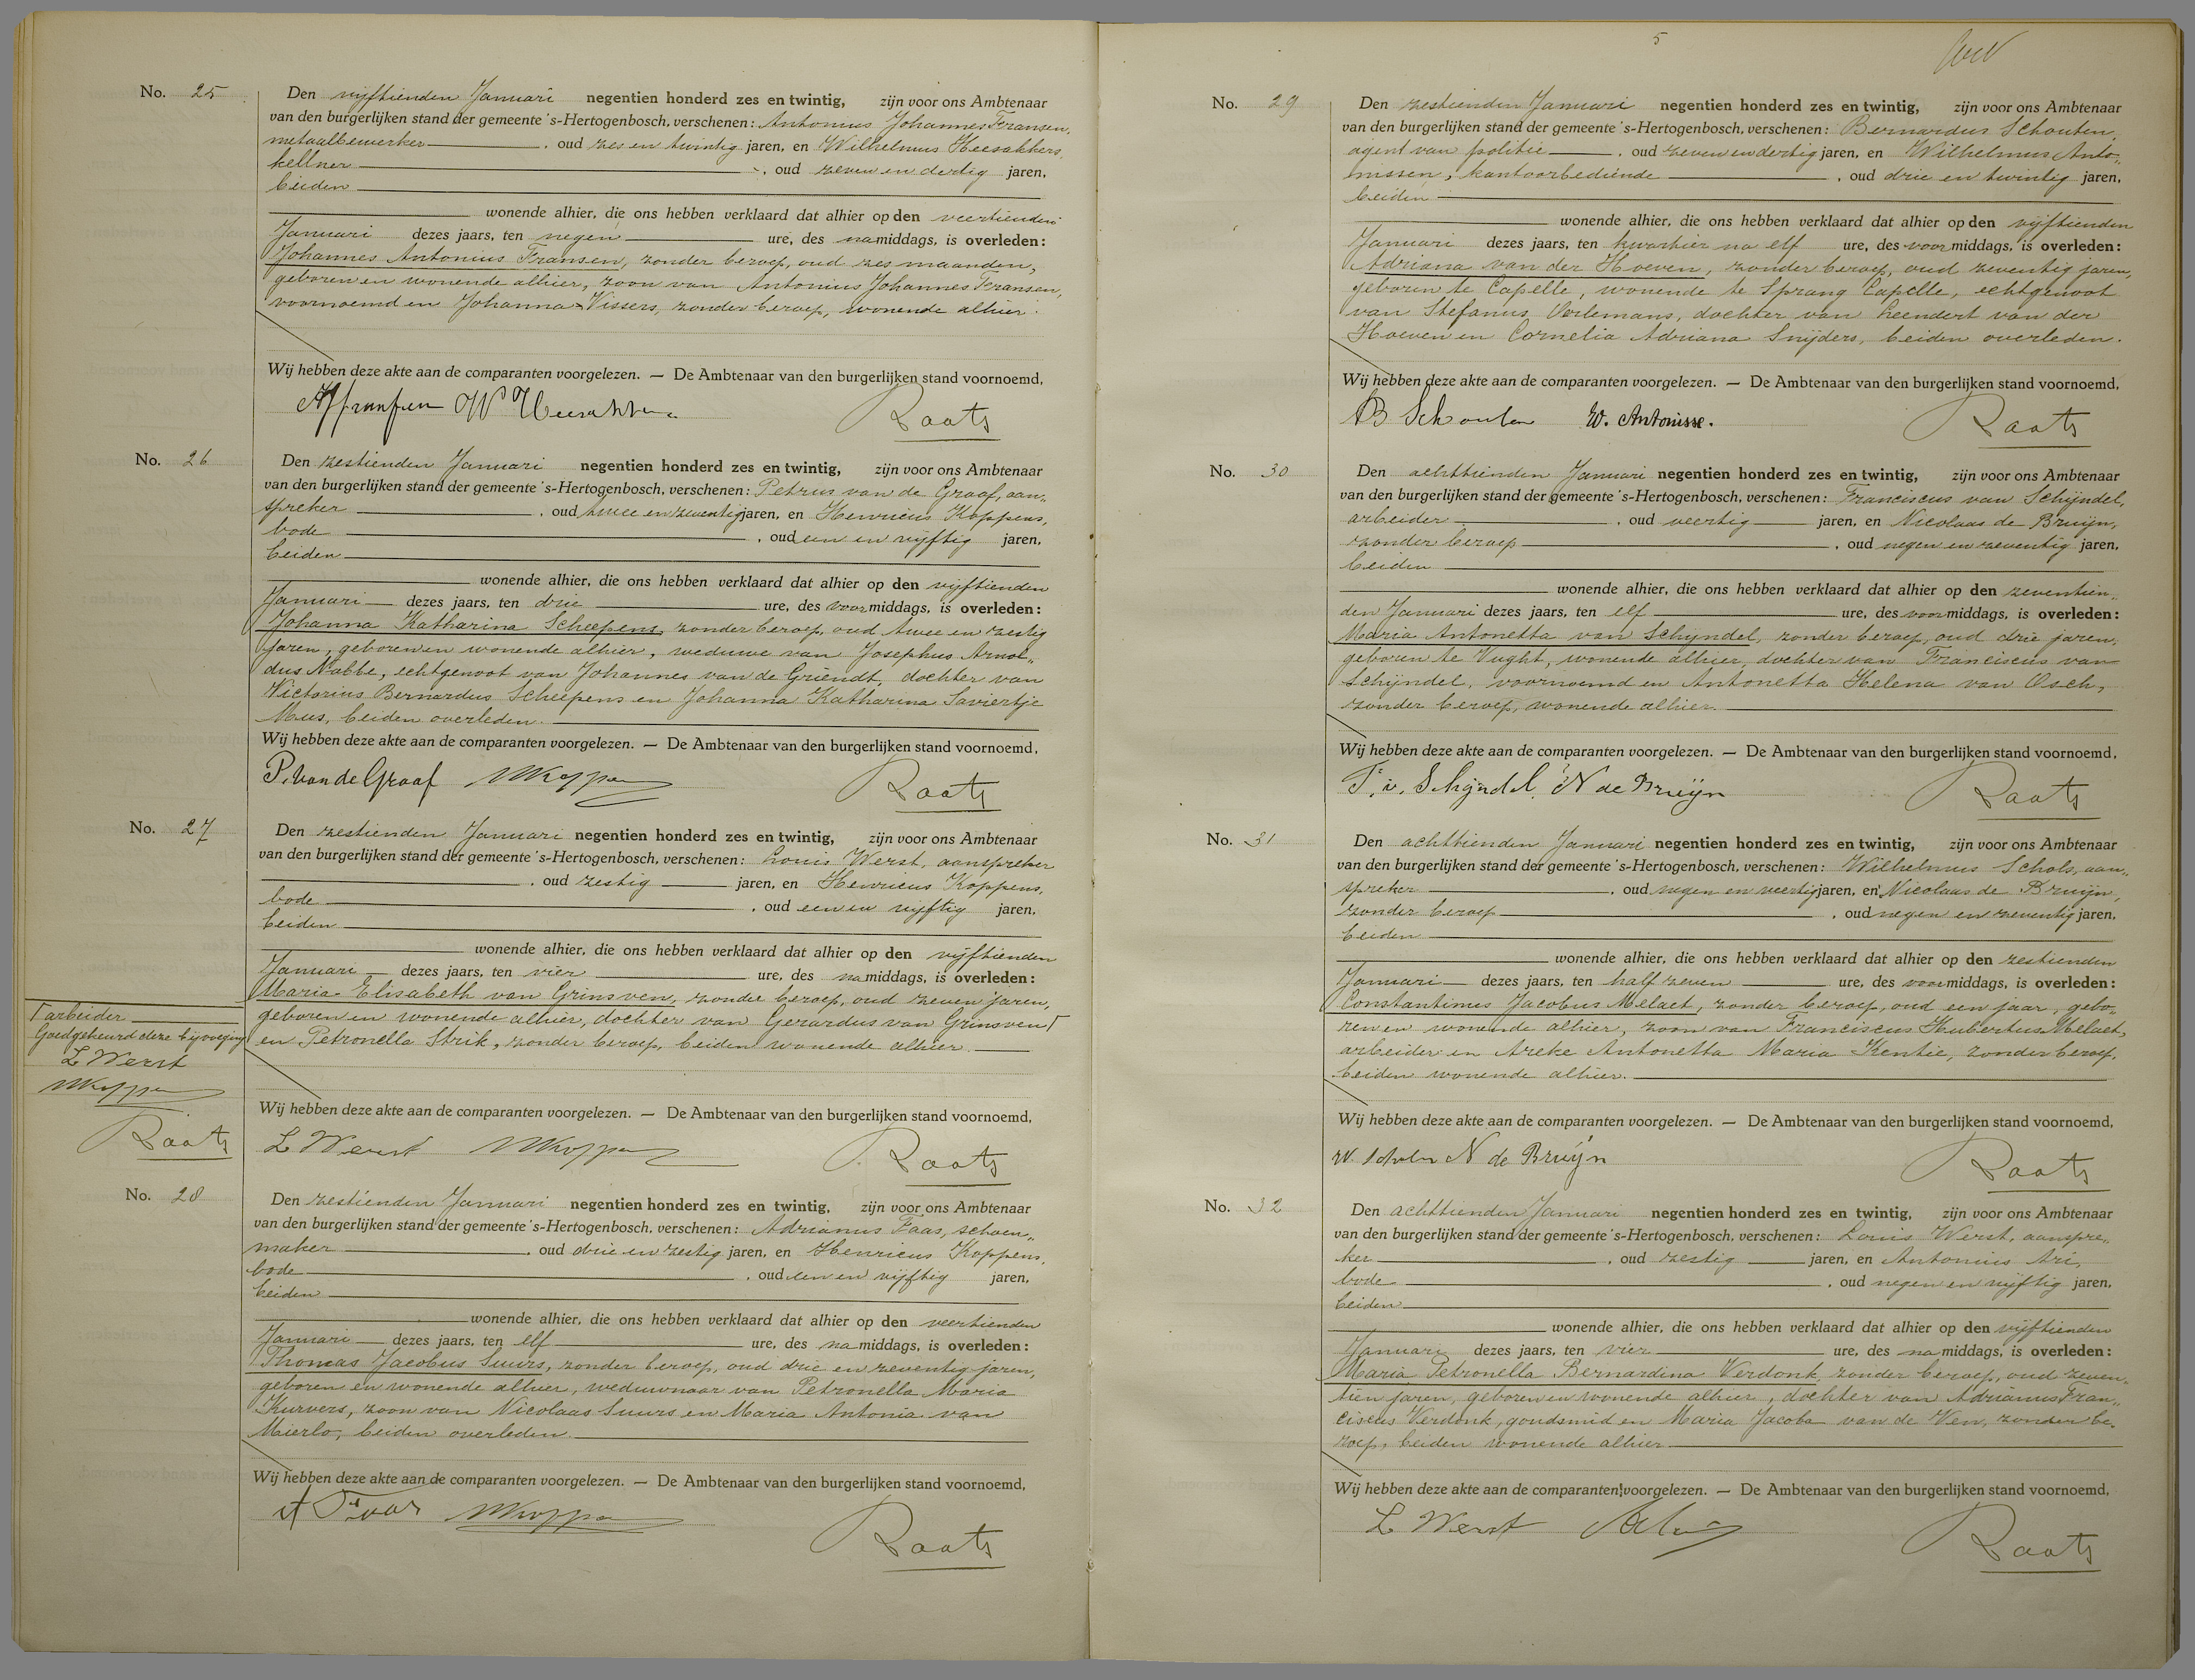 No. 25
Den vijftienden Januari negentien honderd zes en twintig, zijn voor ons Ambtenaar
van den burgerlijken stand der gemeente 's-Hertogenbosch, verschenen: Antonius Johannes Fransen,
metaalbewerker , oud zes en twintig jaren, en Wilhelmus Heesakkers,
kellner , oud zeven en dertig jaren,
beiden
wonende alhier, die ons hebben verklaard dat alhier op den veertienden
Januari dezes jaars, ten negen ure, des namiddags, is overleden:
Johannes Antonius Fransen, zonder beroep, oud zes maanden,
geboren en wonende alhier, zoon van Antonius Johannes Fransen,
voornoemd en Johanna Vissers, zonder beroep, wonende alhier.
Wij hebben deze akte aan de comparanten voorgelezen. — De Ambtenaar van den burgerlijken stand voornoemd,
Raats
No. 26
Den zestienden Januari negentien honderd zes en twintig, zijn voor ons Ambtenaar
van den burgerlijken stand der gemeente 's-Hertogenbosch, verschenen: Petrus van de Graaf, aan„
spreker , oud twee en zeventig jaren, en Henricus Koppens,
bode , oud een en vijftig jaren,
beiden
wonende alhier, die ons hebben verklaard dat alhier op den vijftienden
Januari dezes jaars, ten drie ure, des voormiddags, is overleden:
Johanna Katharina Scheepens, zonder beroep, oud twee en zestig
jaren, geboren en wonende alhier, weduwe van Josephus Arnol„
dus Nabbe, echtgenoot van Johannes van de Griendt, dochter van
Victorius Bernardus Scheepens en Johanna Katharina Saviertje
Mus, beiden overleden.
Wij hebben deze akte aan de comparanten voorgelezen. — De Ambtenaar van den burgerlijken stand voornoemd,
P. van de Graaf HKoppens Raats
No. 27
Den zestienden Januari negentien honderd zes en twintig, zijn voor ons Ambtenaar
van den burgerlijken stand der gemeente 's-Hertogenbosch, verschenen: Louis Werst, aanspreker
, oud zestig jaren, en Henricus Koppens,
bode , oud een en vijftig jaren,
beiden
wonende alhier, die ons hebben verklaard dat alhier op den vijftienden
Januari dezes jaars, ten vier ure, des namiddags, is overleden:
Maria Elisabeth van Grinsven, zonder beroep, oud zeven jaren,
geboren en wonende alhier, dochter van Gerardus van Grinsven Γ
en Petronella Strik, zonder beroep, beiden wonende alhier.
Γ arbeider
Goedgekeurd deze bijvoeging
L Werst
HKoppens
Raats
Wij hebben deze akte aan de comparanten voorgelezen. — De Ambtenaar van den burgerlijken stand voornoemd,
L Werst HKoppens Raats
No. 28
Den zestienden Januari negentien honderd zes en twintig, zijn voor ons Ambtenaar
van den burgerlijken stand der gemeente 's-Hertogenbosch, verschenen: Adrianus Faas, schoen„
maker , oud drie en zestig jaren, en Henricus Koppens,
bode , oud een en vijftig jaren,
beiden
wonende alhier, die ons hebben verklaard dat alhier op den veertienden
Januari dezes jaars, ten elf ure, des namiddags, is overleden:
Thomas Jacobus Suurs, zonder beroep, oud drie en zeventig jaren,
geboren en wonende alhier, weduwnaar van Petronella Maria
Kurvers, zoon van Nicolaas Suurs en Maria Antonia van
Mierlo, beiden overleden.
Wij hebben deze akte aan de comparanten voorgelezen. — De Ambtenaar van den burgerlijken stand voornoemd,
A Faas HKoppens Raats
5
No. 29
Den zestienden Januari negentien honderd zes en twintig, zijn voor ons Ambtenaar
van den burgerlijken stand der gemeente 's-Hertogenbosch, verschenen: Bernardus Schouten,
agent van politie , oud zeven en dertig jaren, en Wilhelmus Anto„
nissen, kantoorbediende , oud drie en twintig jaren,
beiden
wonende alhier, die ons hebben verklaard dat alhier op den vijftienden
Januari dezes jaars, ten kwartier na elf ure, des voormiddags, is overleden:
Adriana van der Hoeven, zonder beroep, oud zeventig jaren,
geboren te Capelle, wonende te Sprang Capelle, echtgenoot
van Stefanus Oerlemans, dochter van Leendert van der
Hoeven en Cornelia Adriana Snijders, beiden overleden.
Wij hebben deze akte aan de comparanten voorgelezen. — De Ambtenaar van den burgerlijken stand voornoemd,
B Schouten W. Antonisse. Raats
No. 30
Den achttienden Januari negentien honderd zes en twintig, zijn voor ons Ambtenaar
van den burgerlijken stand der gemeente 's-Hertogenbosch, verschenen: Franciscus van Schijndel,
arbeider , oud veertig jaren, en Nicolaas de Bruijn,
zonder beroep , oud negen en zeventig jaren,
beiden
wonende alhier, die ons hebben verklaard dat alhier op den zeventien„
den Januari dezes jaars, ten elf ure, des voormiddags, is overleden:
Maria Antonetta van Schijndel, zonder beroep, oud drie jaren,
geboren te Vught, wonende alhier, dochter van Franciscus van
Schijndel, voornoemd en Antonetta Helena van Osch,
zonder beroep, wonende alhier.
Wij hebben deze akte aan de comparanten voorgelezen. — De Ambtenaar van den burgerlijken stand voornoemd,
F. v. Schijndel N de Bruijn Raats
No. 31
Den achttienden Januari negentien honderd zes en twintig, zijn voor ons Ambtenaar
van den burgerlijken stand der gemeente 's-Hertogenbosch, verschenen: Wilhelmus Schols, aan„
spreker , oud negen en veertig jaren, en Nicolaas de Bruijn,
zonder beroep , oud negen en zeventig jaren,
beiden
wonende alhier, die ons hebben verklaard dat alhier op den zestienden
Januari dezes jaars, ten half zeven ure, des voormiddags, is overleden:
Constantinus Jacobus Melaet, zonder beroep, oud een jaar, gebo„
ren en wonende alhier, zoon van Franciscus Hubertus Melaet,
arbeider en Areke Antonetta Maria Kentie, zonder beroep,
beiden wonende alhier.
Wij hebben deze akte aan de comparanten voorgelezen. — De Ambtenaar van den burgerlijken stand voornoemd,
W. Schols N de Bruijn Raats
No. 32
Den achttienden Januari negentien honderd zes en twintig, zijn voor ons Ambtenaar
van den burgerlijken stand der gemeente 's-Hertogenbosch, verschenen: Louis Werst, aanspre„
ker , oud zestig jaren, en Antonius Ari,
bode , oud negen en vijftig jaren,
beiden
wonende alhier, die ons hebben verklaard dat alhier op den vijftienden
Januari dezes jaars, ten vier ure, des namiddags, is overleden:
Maria Petronella Bernardina Verdonk, zonder beroep, oud zeven„
tien jaren, geboren en wonende alhier, dochter van Adrianus Fran„
ciscus Verdonk, goudsmid en Maria Jacoba van de Ven, zonder be„
roep, beiden wonende alhier.
Wij hebben deze akte aan de comparanten voorgelezen. — De Ambtenaar van den burgerlijken stand voornoemd,
L Werst Raats